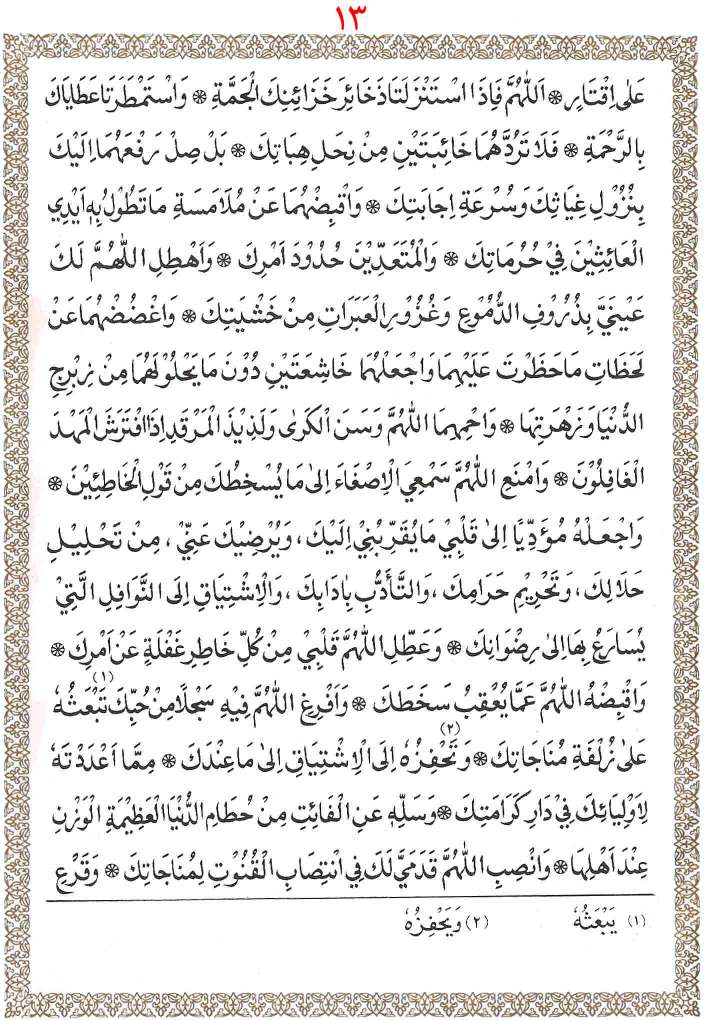 ١٣
عَلٰى اِقْتَارٍ ❊ اَللّٰهُمَّ فَاِذَا اسْتَنْزَلَتَا ذَخَائِرَ خَزَائِنِكَ الْجَمَّةِ ❊ وَاسْتَمْطَرَتَا عَطَايَاكَ
بِالرَّحْمَةِ ❊ فَلَا تَرُدَّهُمَا خَائِبَتَيْنِ مِنْ نِحَلِ هِبَاتِكَ ❊ بَلْ صِلْ رَفْعَهُمَا اِلَيْكَ
بِنُزُوْلِ غِيَاثِكَ وَسُرْعَةِ اِجَابَتِكَ ❊ وَاقْبِضْهُمَا عَنْ مُلَامَسَةِ مَا تَطُوْلُ بِهٖ اَيْدِي
الْعَائِثِيْنَ فِيْ حُرُمَاتِكَ ❊ وَالْمُتَعَدِّيْنَ حُدُوْدَ اَمْرِكَ ❊ وَاَهْطِلِ اللّٰهُمَّ لَكَ
عَيْنَيَّ بِذُرُوْفِ الدُّمُوْعِ وَغُزُوْرِ الْعَبَرَاتِ مِنْ خَشْيَتِكَ ❊ وَاغْضُضْهُمَا عَنْ
لَحَظَاتِ مَا حَظَرْتَ عَلَيْهِمَا وَاجْعَلْهُمَا خَاشِعَتَيْنِ دُوْنَ مَا يَحْلُوْ لَهُمَا مِنْ زِبْرِجِ
الدُّنْيَا وَزَهْرَتِهَا ❊ وَاحْمِهِمَا اللّٰهُمَّ وَسَنَ الْكَرٰى وَلَذِيْذَ الْمَرْقَدِ اِذَا افْتَرَشَ الْمَهْدَ
الْغَافِلُوْنَ ❊ وَامْنَعِ اللّٰهُمَّ سَمْعِيَ الْاِصْغَاءَ اِلٰى مَا يُسْخِطُكَ مِنْ قَوْلِ الْخَاطِئِيْنَ ❊
وَاجْعَلْهُ مُؤَدِّيًا اِلٰى قَلْبِيْ مَا يُقَرِّبُنِيْ اِلَيْكَ، وَيُرْضِيْكَ عَنِّيْ، مِنْ تَحْلِيْلِ
حَلَالِكَ، وَتَحْرِيْمِ حَرَامِكَ، وَالتَّأَدُّبِ بِاٰدَابِكَ، وَالْاِشْتِيَاقِ اِلَى النَّوَافِلِ الَّتِيْ
يُسَارَعُ بِهَا اِلٰى رِضْوَانِكَ ❊ وَعَطِّلِ اللّٰهُمَّ قَلْبِيْ مِنْ كُلِّ خَاطِرِ غَفْلَةٍ عَنْ اَمْرِكَ ❊
وَاقْبِضْهُ اللّٰهُمَّ عَمَّا يُعْقِبُ سَخَطَكَ ❊ وَاَفْرِغِ اللّٰهُمَّ فِيْهِ سَجْلًا مِنْ حُبِّكَ تَبْعَثُهُ (١)
عَلٰى زُلْفَةِ مُنَاجَاتِكَ ❊ وَتَحْفِزُهُ (٢) اِلَى الْاِشْتِيَاقِ اِلٰى مَا عِنْدَكَ ❊ مِمَّا اَعْدَدْتَهُ
لِاَوْلِيَائِكَ فِيْ دَارِ كَرَامَتِكَ ❊ وَسَلِّهٖ عَنِ الْفَائِتِ مِنْ حُطَامِ الدُّنْيَا الْعَظِيْمَةِ الْوَزْنِ
عِنْدَ اَهْلِهَا ❊ وَانْصِبِ اللّٰهُمَّ قَدَمَيَّ لَكَ فِي انْتِصَابِ الْقُنُوْتِ لِمُنَاجَاتِكَ ❊ وَقَرْعِ
(١) يَبْعَثُهُ (٢) وَيَحْفِزُهُ